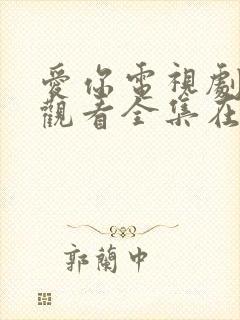 愛你電視劇
觀看全集在
郭蘭中